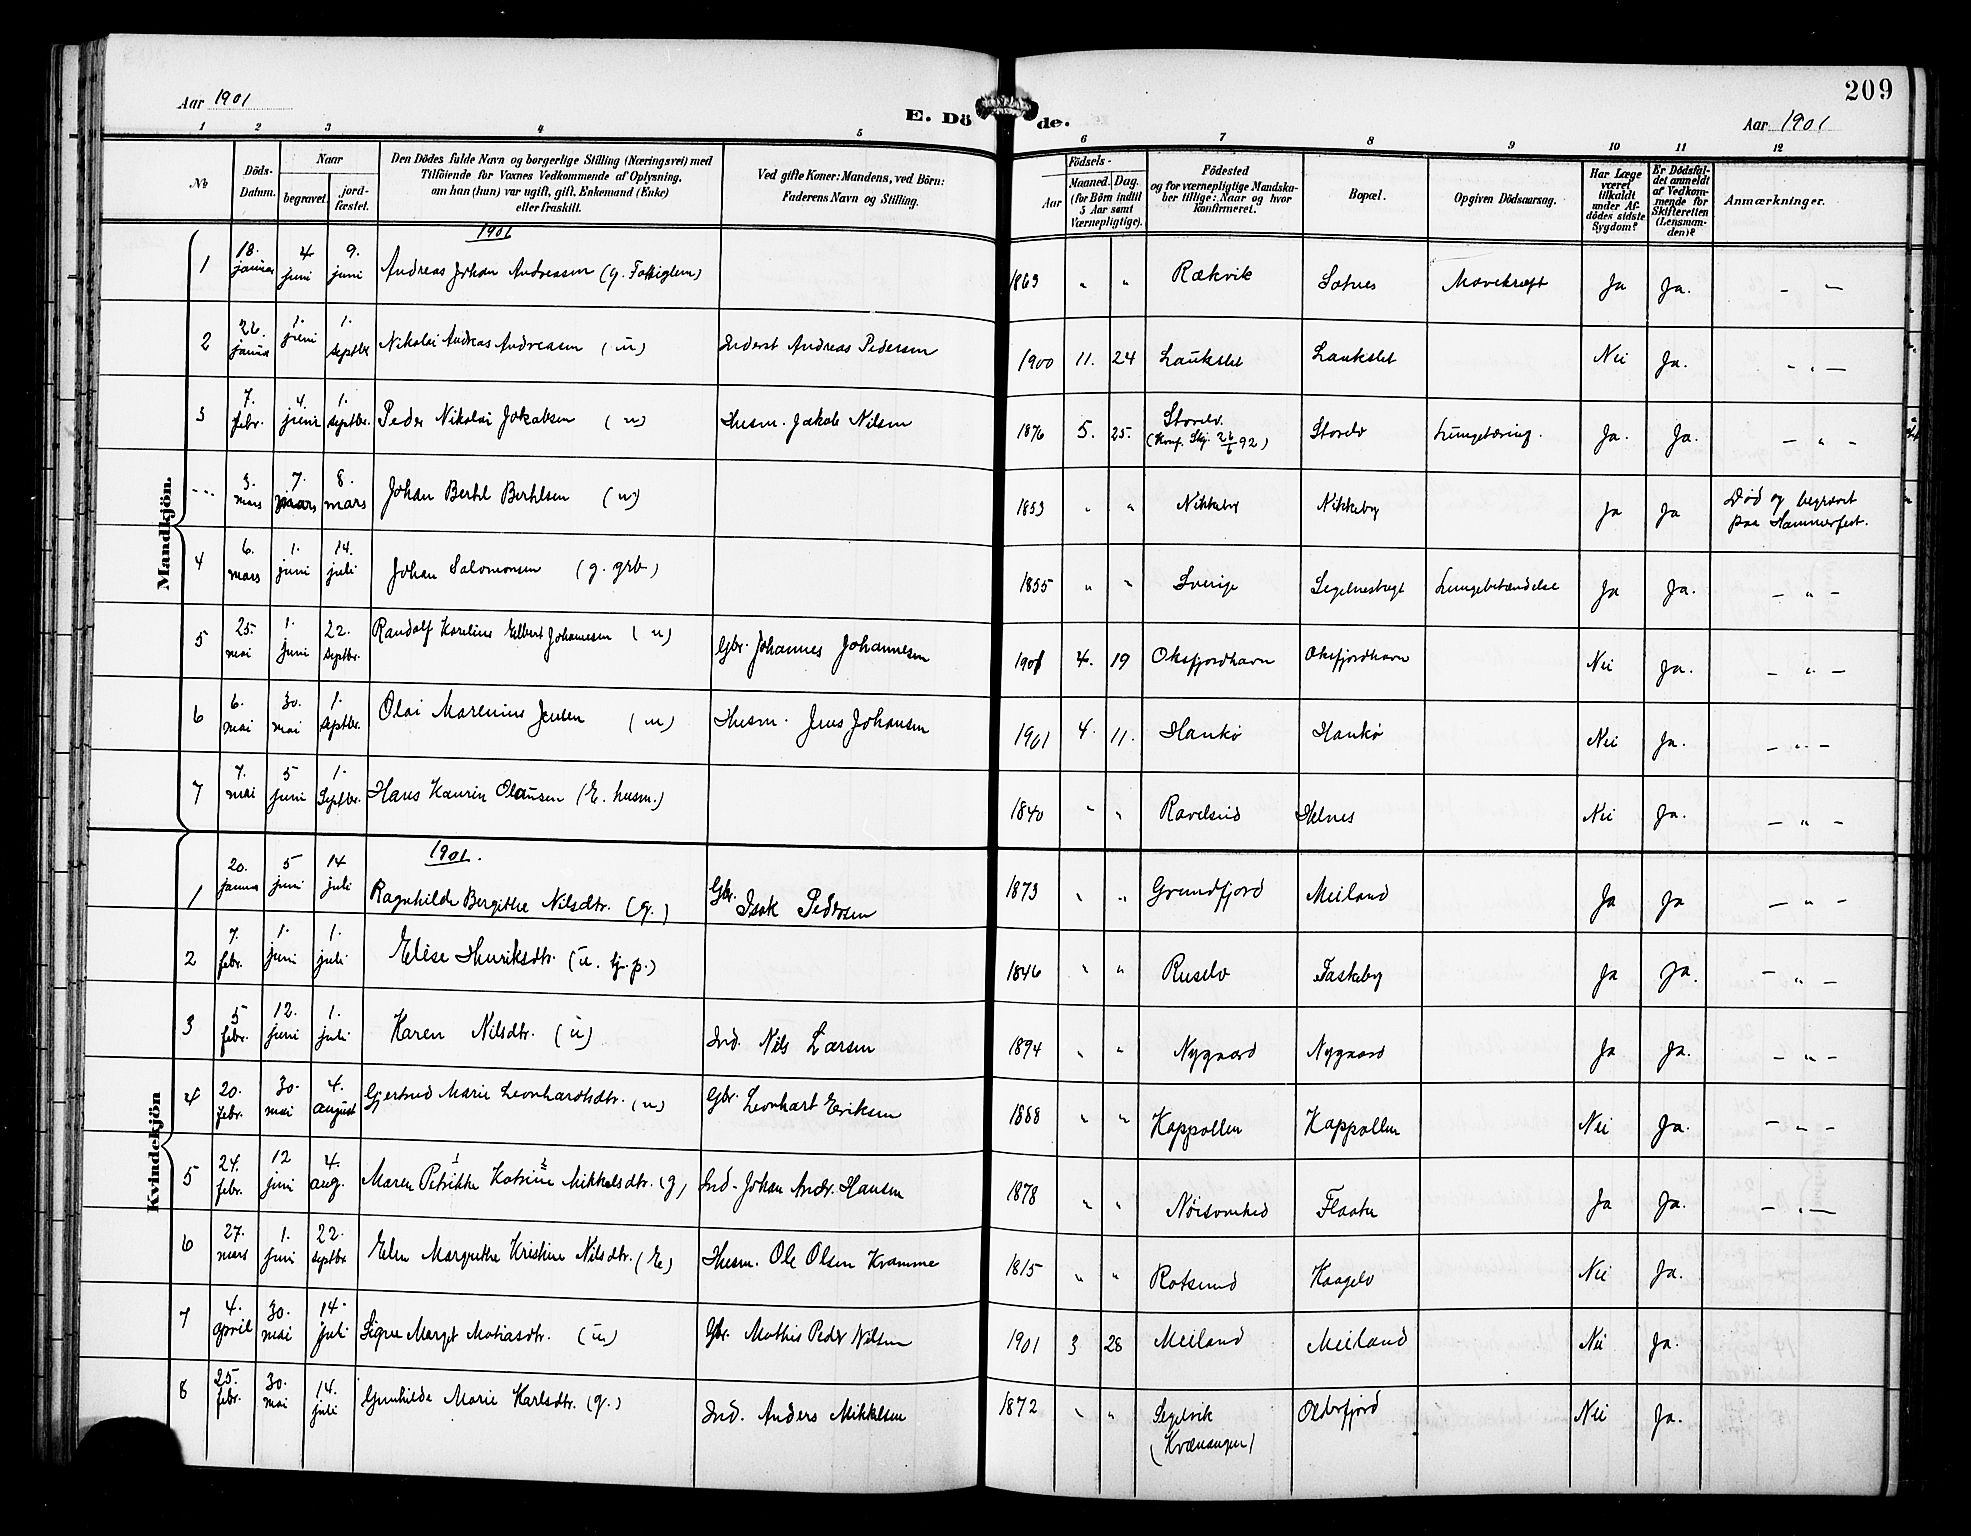 209
Aar 1901
E. Dö de.
Aar 1901
1 2 3 4 5 6 7 8 9 10 11 12
№
Döds-Datum.
Naar
begravet.
jord-fæstet.
Den Dödes fulde Navn og borgerlige Stilling (Næringsvei) med
Tilföiende for Voxnes Vedkommende af Oplysning,
om han (hun) var ugift, gift, Enkemand (Enke)
eller fraskilt.
Ved gifte Koner: Mandens, ved Börn:
Faderens Navn og Stilling.
Födsels-
Aar
Maaned. Dag.
(for Börn indtil
5 Aar samt
Værnepligtige).
Födested
og for værnepligtige Mandska-
ber tillige: Naar og hvor
konfirmeret.
Bopæl.
Opgiven Dödsaarsag.
Har Læge
været
tilkaldt
under Af-
dödes sidste
Sygdom?
Er Dödsfal-
det anmeldt
af Vedkom-
mende for
Skifteretten
(Lensman-
den)?
Anmærkninger.
Mandkjön.
1901
1 18. januar 4 juni 9. juni Andreas Johan Andreassen (g. Fattiglem) 1863 " " Rækvik Sotnes Mavekræft Ja Ja. - -
2 26. janua 1. juni 1. septbr Nikolai Andreas Andreasen (u) Inderst Andreas Pedersen 1900 11. 24 Laukslet Laukslet Nei Ja. - " -
3 7. febr. 4. juni 1. septbr. Peder Nikolai Jakobsen (u) Husm. Jakob Nilsen 1876 5. 25. Storelv. (Konf. Skj. 26/6 92) Storelv Lungetæring. Ja. Ja. - " -
--- 3. mars 7. mars 8. mars Johan Bertel Bertelsen (u) 1853 " " Nikkeby Nikkeby Ja Ja Død og begravet
paa Hammerfest.
4 6. mars 1. juni 14. juli Johan Salomonsen (g. grb) 1855 " " Sverige Segelnestragt Lungebetændelse Ja Ja. - " -
5 25. mai 1. juni 22. septbr. Randolf Karelius Elbert Johannesen (u) Gbr. Johannes Johannesen 1901 4. 19 Oksfjordhavn Oksfjordhavn Nei Ja. - " -
6 6. mai 30. mai 1. septbr. Olai Marenius Jensen (u) Husm. Jens Johansen 1901 4. 11. Haukø Haukø Nei Ja. - " -
7 7. mai 5 juni 1. Septbr. Hans Kaurin Olausen (E. husm.) 1840 " " Ravelseid Helnes Nei Ja. - " -
Kvindekjön
1901.
1 20. janua 5 juni 14 juli Ragnhilde Bergitte Nilsdtr. (g.) Gbr. Isak Pedersen 1873 " " Grundfjord Meiland Ja Ja - " -
2 7. febr. 1. juni 1. juli Elise Henriksdtr. (u. tj. p.) 1846 " " Ruselv Taskeby Ja Ja. - " -
3 5 febr. 12. juni 1. juli Karen Nilsdtr. (u) Ind. Nils Larsen 1894 " " Nygaard Nygaard Ja Ja. - " -
4 20. febr. 30. mai 4. august Gjertrud Marie Leonhardtsdtr. (u) Gbr. Leonhart Eriksen 1888 " " Kappollen Kappollen Nei Ja. - " -
5 24. febr. 12 juni 4. aug. Maren Petrikke Katrine Mikkelsdtr. (g) Ind. Johan Andr. Hansen 1878 " " Nøisomhed Flaaten Ja Ja. - " -
6 27. mars 1. juni 22. septbr Elen Margrethe Kristine Nilsdtr. (E) Husm. Ole Olsen Kramme 1815 " " Rotsund Kaagelv Nei Ja.
7 4. april 30. mai 14. juli Signe Marget Matiasdtr. (u) Gbr. Mathis Peder Nilsen 1901 3 28 Meiland Meiland Nei Ja.
8 25. febr. 30. mai 14. juli Gunhilde Marie Karlsdtr. (g.) Ind. Anders Mikkelsen 1872 " " Segelvik
(Kvænangen) Olderfjord Nei Ja.